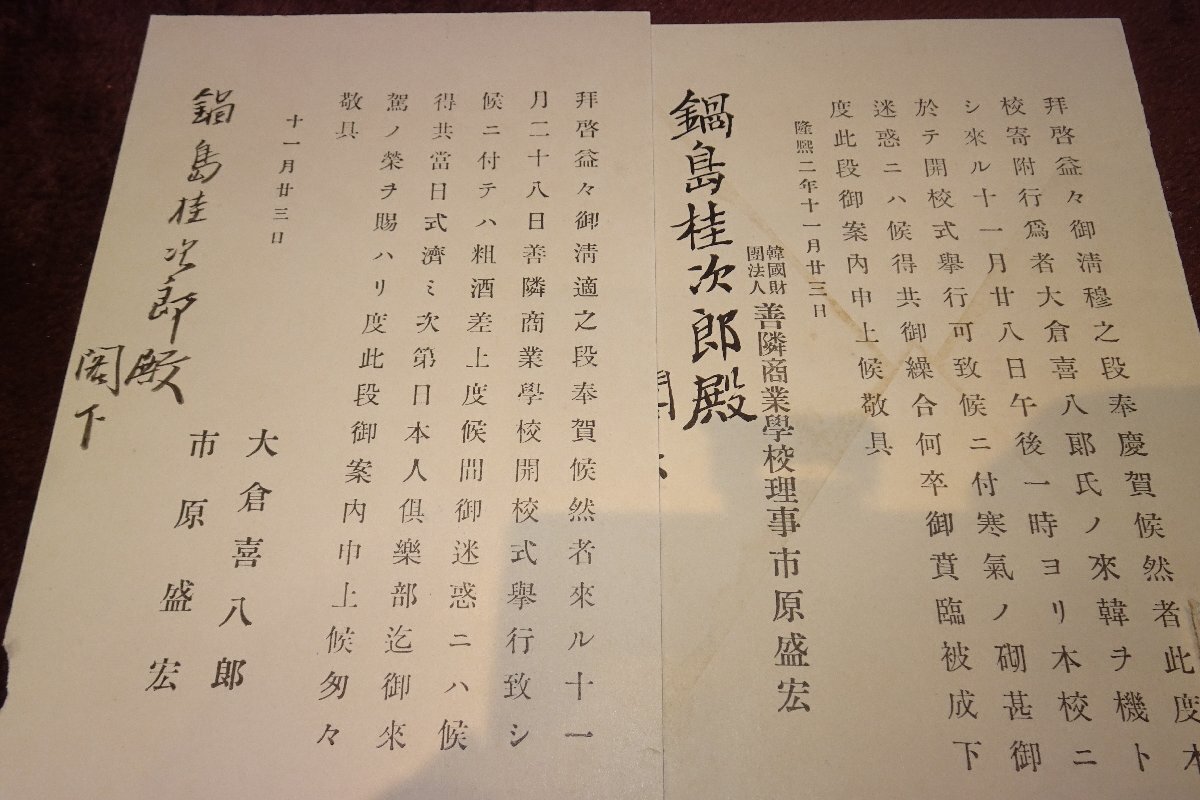 拜啓益々御淸穆之段奉慶賀候然者此度本
校寄附行爲者大倉喜八郎氏ノ來韓ヲ機ト
シ來ル十一月廿八日午後一時ヨリ本校ニ
於テ開校式擧行可致候ニ付寒氣ノ砌甚御
迷惑ニハ候得共御繰合何卒御賁臨被成下
度此段御案內申上候敬具
隆熙二年十一月廿三日
韓國財團法人 善隣商業學校理事市原盛宏
鍋島桂次郎殿
拜啓益々御淸適之段奉賀候然者來ル十一
月二十八日善隣商業學校開校式擧行致シ
候ニ付テハ粗酒差上度候間御迷惑ニハ候
得共當日式濟ミ次第日本人俱樂部迄御來
駕ノ榮ヲ賜ハリ度此段御案內申上候匆々
敬具
十一月廿三日
大倉喜八郎
市原盛宏
鍋島桂次郎殿
閣下